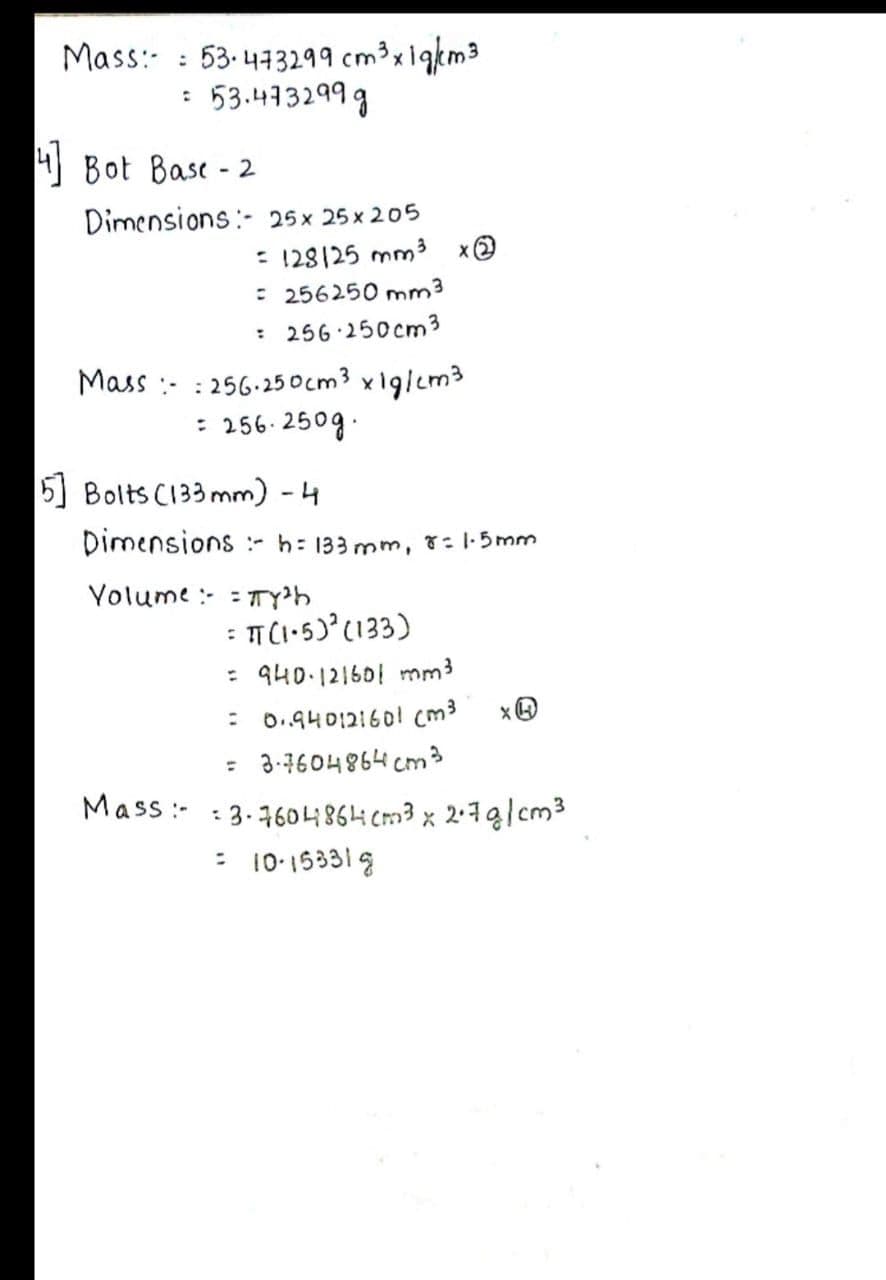 Mass:- : 53.473299 cm³ x 1g/cm³
= 53.473299 g
4] Bot Base - 2
Dimensions :- 25 x 25 x 205
= 128125 mm³ x ②
= 256250 mm³
= 256.250 cm³
Mass :- : 256.250 cm³ x 1g/cm³
= 256.250g.
5] Bolts (133 mm) - 4
Dimensions :- h = 133 mm, r = 1.5 mm
Volume :- = πr²h
= π(1.5)² (133)
= 940.121601 mm³
= 0.940121601 cm³ x ④
= 3.7604864 cm³
Mass :- = 3.7604864 cm³ x 2.7 g/cm³
= 10.15331 g